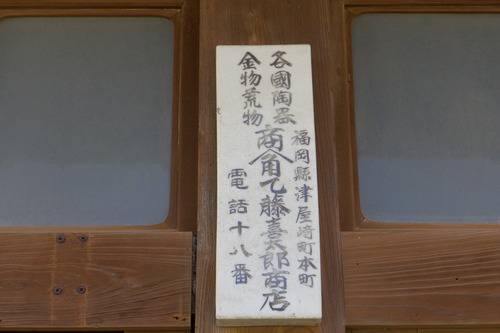 各國陶器
金物荒物
商
福岡縣津屋﨑町本町
角乙藤喜太郎商店
電話十八番